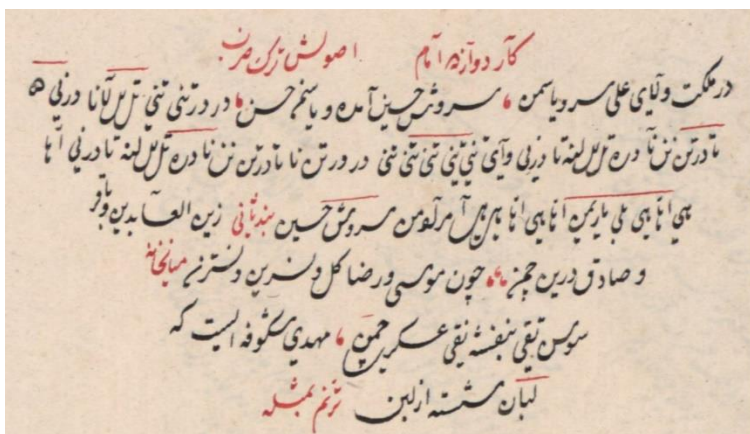 کار دوازده امام اصولش ترک ضرب
در مملکت ولای علی سرو یاسمن سروش حسین آمده و یا سخن حسن در در تنی تنی تل لل لانا درنی
تا درتن نن نا دره تل لل لنه تا درنی وآی تنی تنی تنی تنی تنی در در تن نا تا درتن نن نا دره تل لل لنه تا درنی آها
هی اها هی بلی یار یمن اها هی اها هی هی آمرله من سروش حسین بند ثانی زین العابدین و باقر
و صادق درین چمن چون موسی و رضا کل و نسرین و نسترن میانخانه
سوسن تقی بنفشه نقی عسکری چمن مهدی شکوفه ایست که
لبان شسته از لبن ترنم بمثله